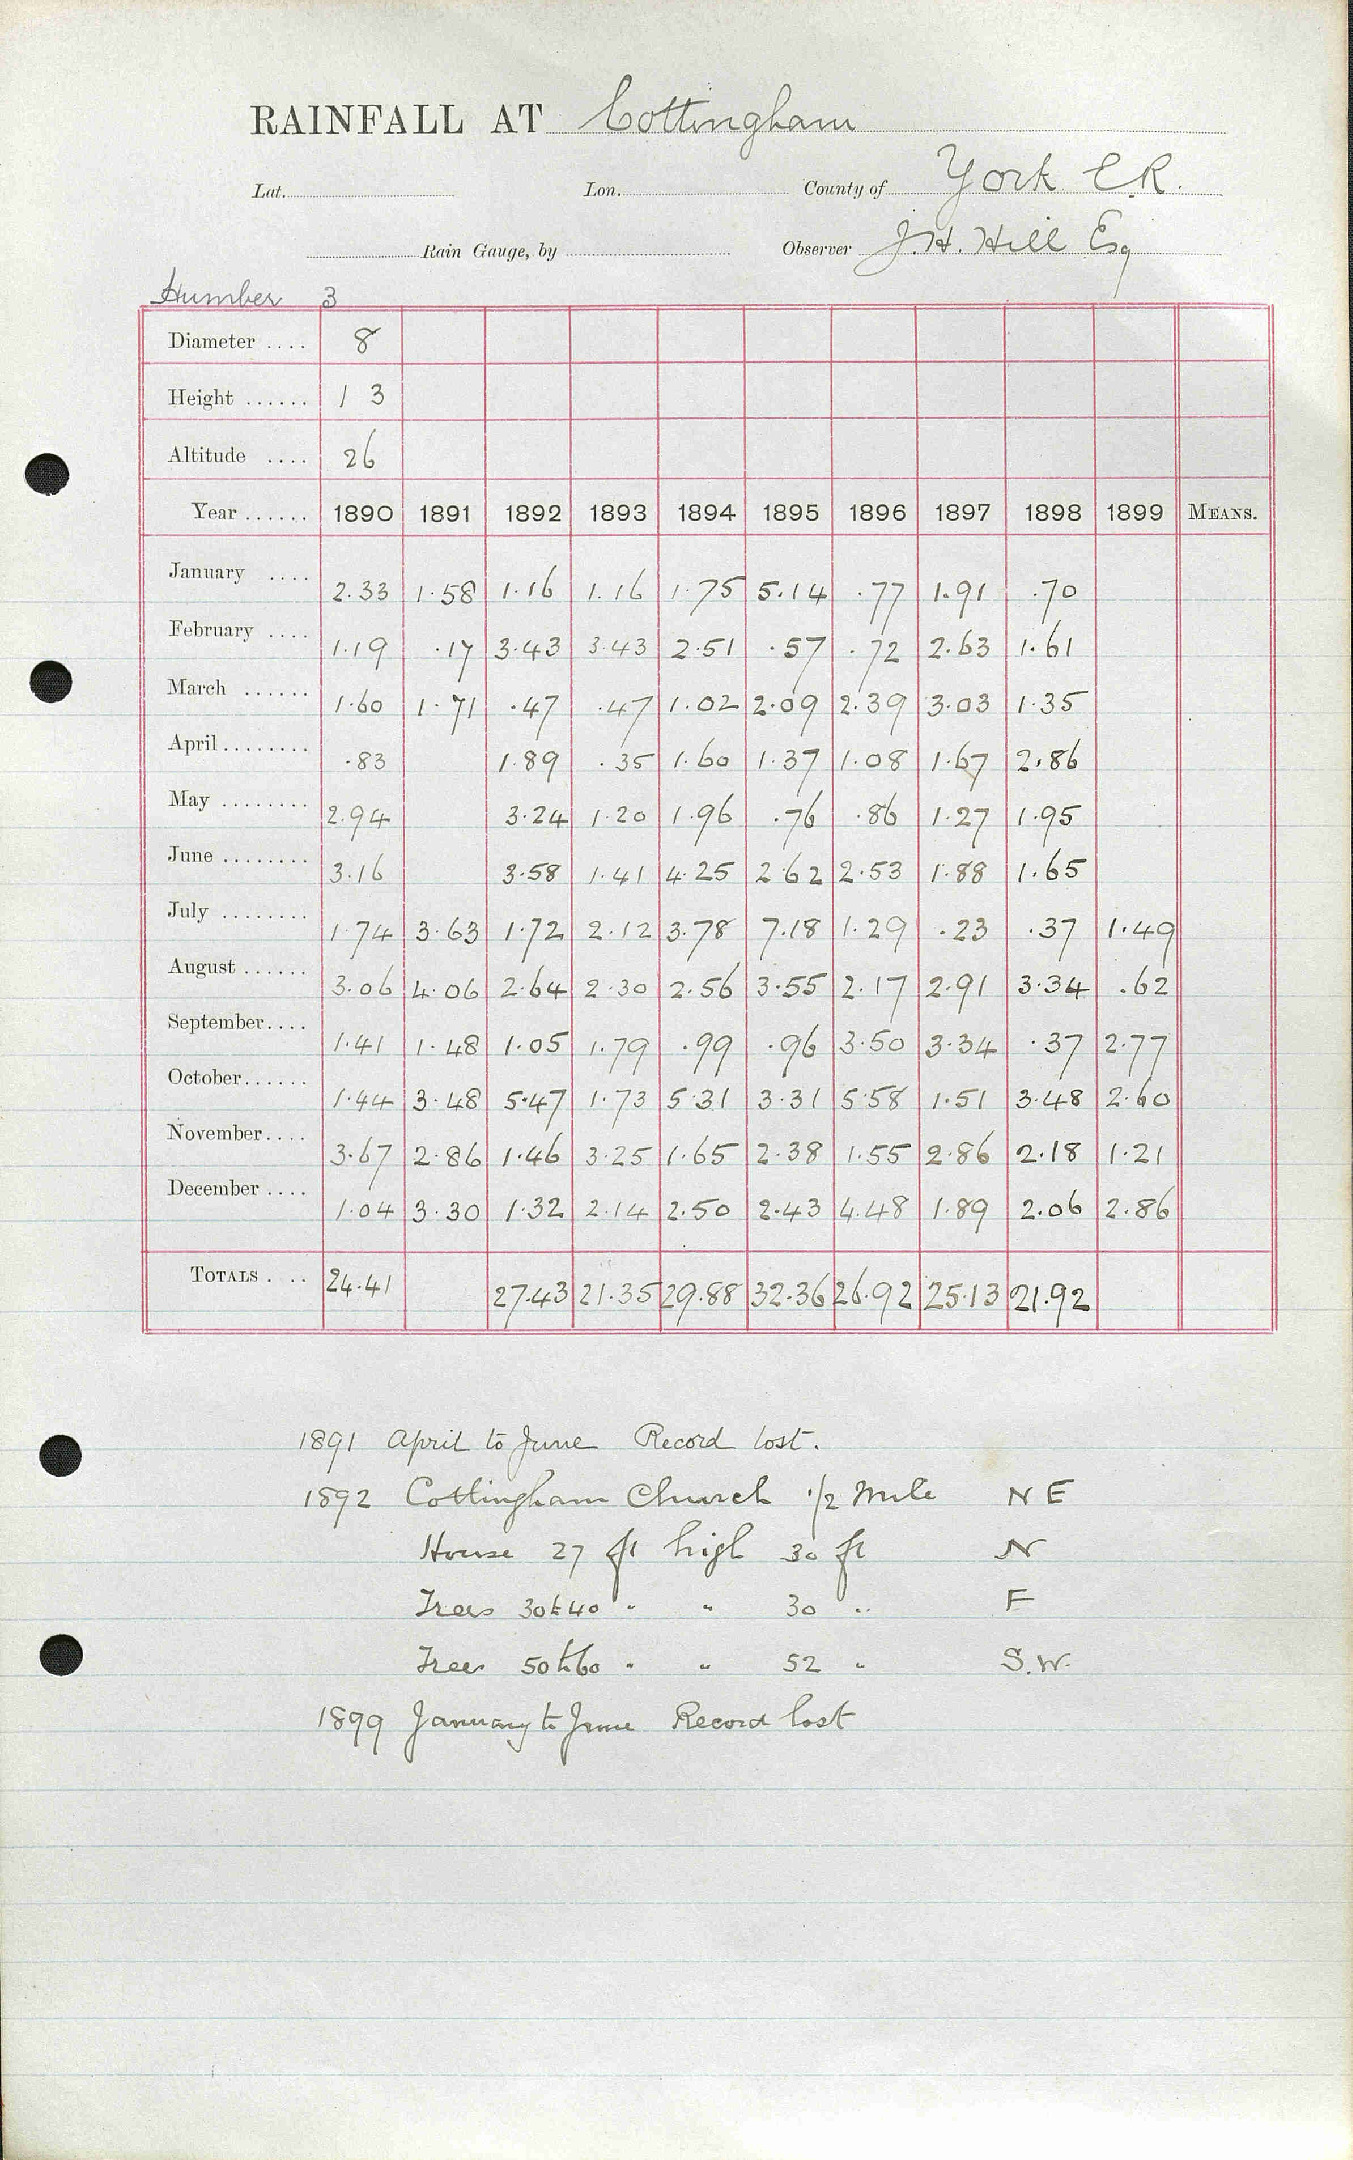 RAINFALL AT Cottingham
Lat. Lon. County of York E.R.
Rain Gauge, by Observer J.H. Hill Esq
Humber 3
Diameter .... 8
Height ...... 1 3
Altitude .... 26
Year ...... 1890 1891 1892 1893 1894 1895 1896 1897 1898 1899 MEANS.
January .... 2.33 1.58 1.16 1.16 1.75 5.14 .77 1.91 .70
February .... 1.19 .17 3.43 3.43 2.51 .57 .72 2.63 1.61
March ...... 1.60 1.71 .47 .47 1.02 2.09 2.39 3.03 1.35
April ........ .83 1.89 .35 1.60 1.37 1.08 1.67 2.86
May ........ 2.94 3.24 1.20 1.96 .76 .86 1.27 1.95
June ........ 3.16 3.58 1.41 4.25 2.62 2.53 1.88 1.65
July ........ 1.74 3.63 1.72 2.12 3.78 7.18 1.29 .23 .37 1.49
August ...... 3.06 4.06 2.64 2.30 2.56 3.55 2.17 2.91 3.34 .62
September.... 1.41 1.48 1.05 1.79 .99 .96 3.50 3.34 .37 2.77
October...... 1.44 3.48 5.47 1.73 5.31 3.31 5.58 1.51 3.48 2.60
November.... 3.67 2.86 1.46 3.25 1.65 2.38 1.55 2.86 2.18 1.21
December .... 1.04 3.30 1.32 2.14 2.50 2.43 4.48 1.89 2.06 2.86
TOTALS .... 24.41 27.43 21.35 29.88 32.36 26.92 25.13 21.92
1891 April to June Record lost.
1892 Cottingham Church 1/2 Mile N E
House 27 ft high 30 ft N
Trees 30 to 40 " " 30 " E
Trees 50 to 60 " " 52 " S.W.
1899 January to June Record lost